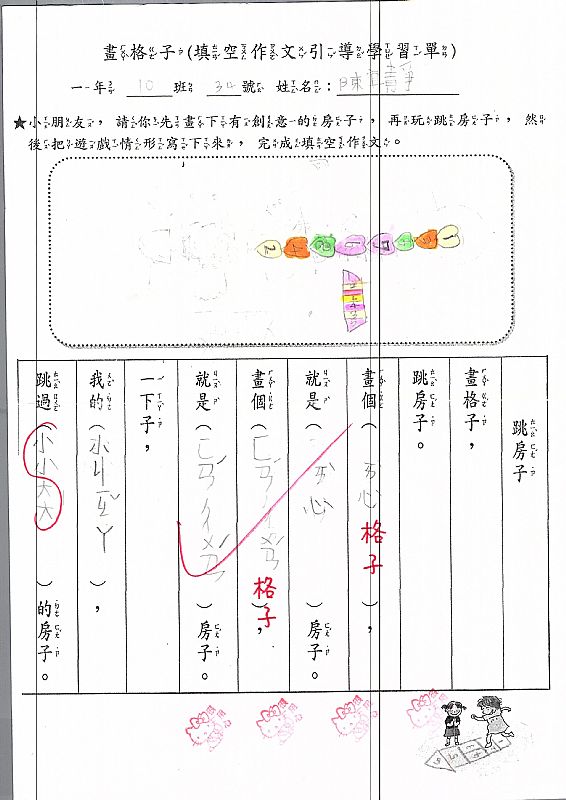 畫格子(填空作文引導學習單)
一年 10 班 34 號 姓名: 陳
★小朋友,請你先畫下有創意的房子,再玩跳房子,然
後把遊戲情形寫下來,完成填空作文。
跳房子
畫格子,
跳房子。
畫個(ㄞ心格子),
就是(ㄞ心)房子。
畫個(格子),
就是()房子。
一下子,
我的(水ㄐㄧㄚ),
跳過(小小大大)的房子。